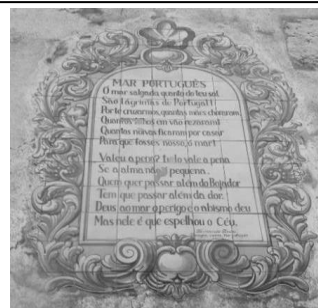 MAR PORTUGUÊS
O mar salgado, quanto do teu sal
São lágrimas de Portugal!
Por te cruzarmos, quantas mães choraram,
Quantos filhos em vão rezaram!
Quantas noivas ficaram por casar
Para que fosses nosso, ó mar!
Valeu a pena? Tudo vale a pena
Se a alma não é pequena.
Quem quer passar além do Bojador
Tem que passar além da dor.
Deus ao mar o perigo e o abismo deu
Mas nele é que espelhou o Céu.